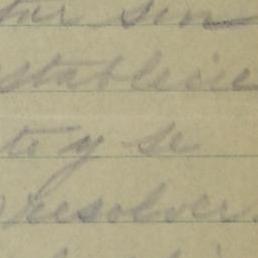 tar sin
establecie
te y se
resolver